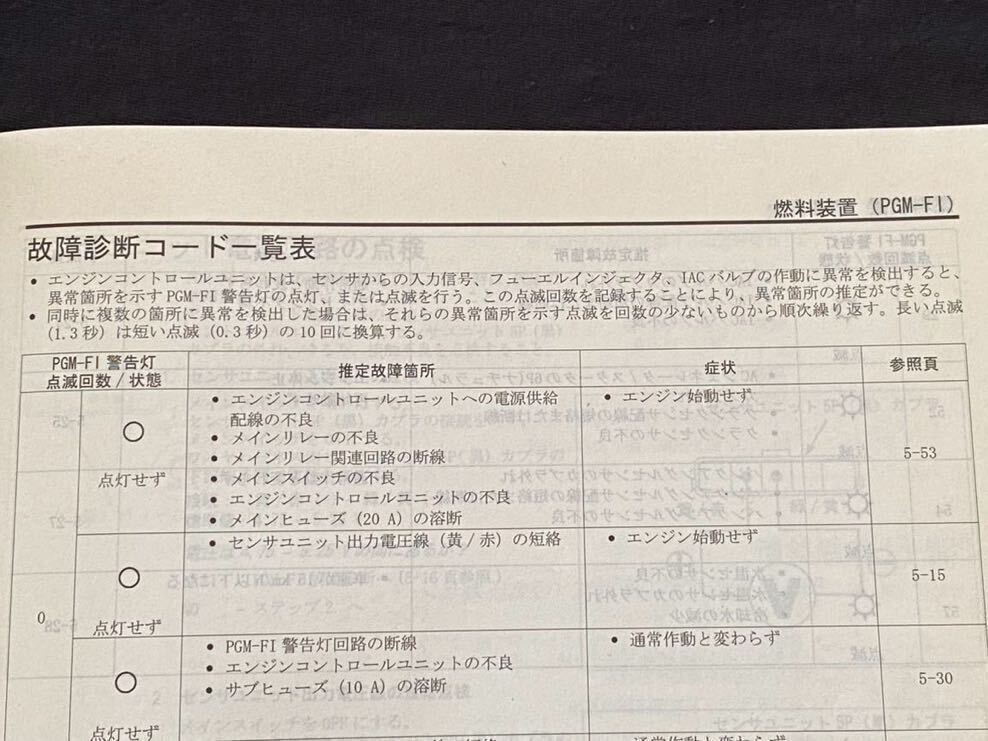 燃料装置 (PGM-FI)
故障診断コード一覧表
• エンジンコントロールユニットは、センサからの入力信号、フューエルインジェクタ、IACバルブの作動に異常を検出すると、
異常箇所を示すPGM-FI警告灯の点灯、または点滅を行う。この点滅回数を記録することにより、異常箇所の推定ができる。
• 同時に複数の箇所に異常を検出した場合は、それらの異常箇所を示す点滅を回数の少ないものから順次繰り返す。長い点滅
(1.3秒) は短い点滅 (0.3秒) の10回に換算する。
PGM-FI 警告灯
点滅回数/状態
推定故障箇所
症状
参照頁
0
点灯せず
• エンジンコントロールユニットへの電源供給
配線の不良
• メインリレーの不良
• メインリレー関連回路の断線
• メインスイッチの不良
• エンジンコントロールユニットの不良
• メインヒューズ (20 A) の溶断
• エンジン始動せず
5-53
点灯せず
• センサユニット出力電圧線 (黄/赤) の短絡
• エンジン始動せず
5-15
点灯せず
• PGM-FI 警告灯回路の断線
• エンジンコントロールユニットの不良
• サブヒューズ (10 A) の溶断
• 通常作動と変わらず
5-30